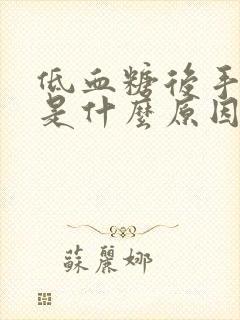 低血糖後手
是什麼原因
蘇麗娜